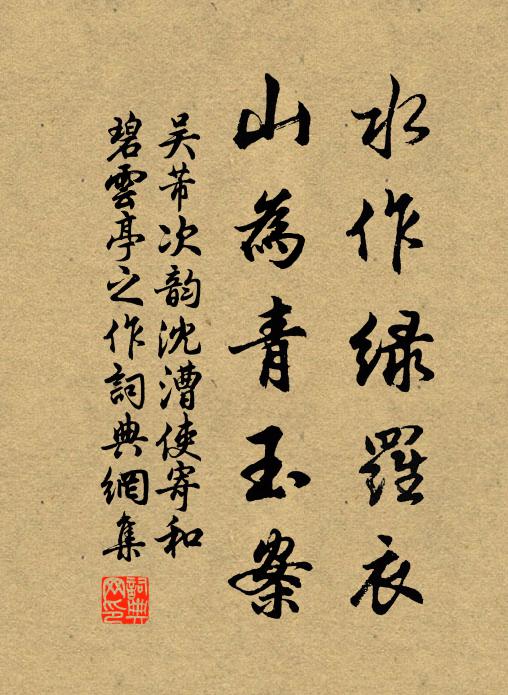 水作綠羅衣
山為青玉案
吴芾次韵沈漕使寄和
碧雲亭之作詞典網集
詞典网印